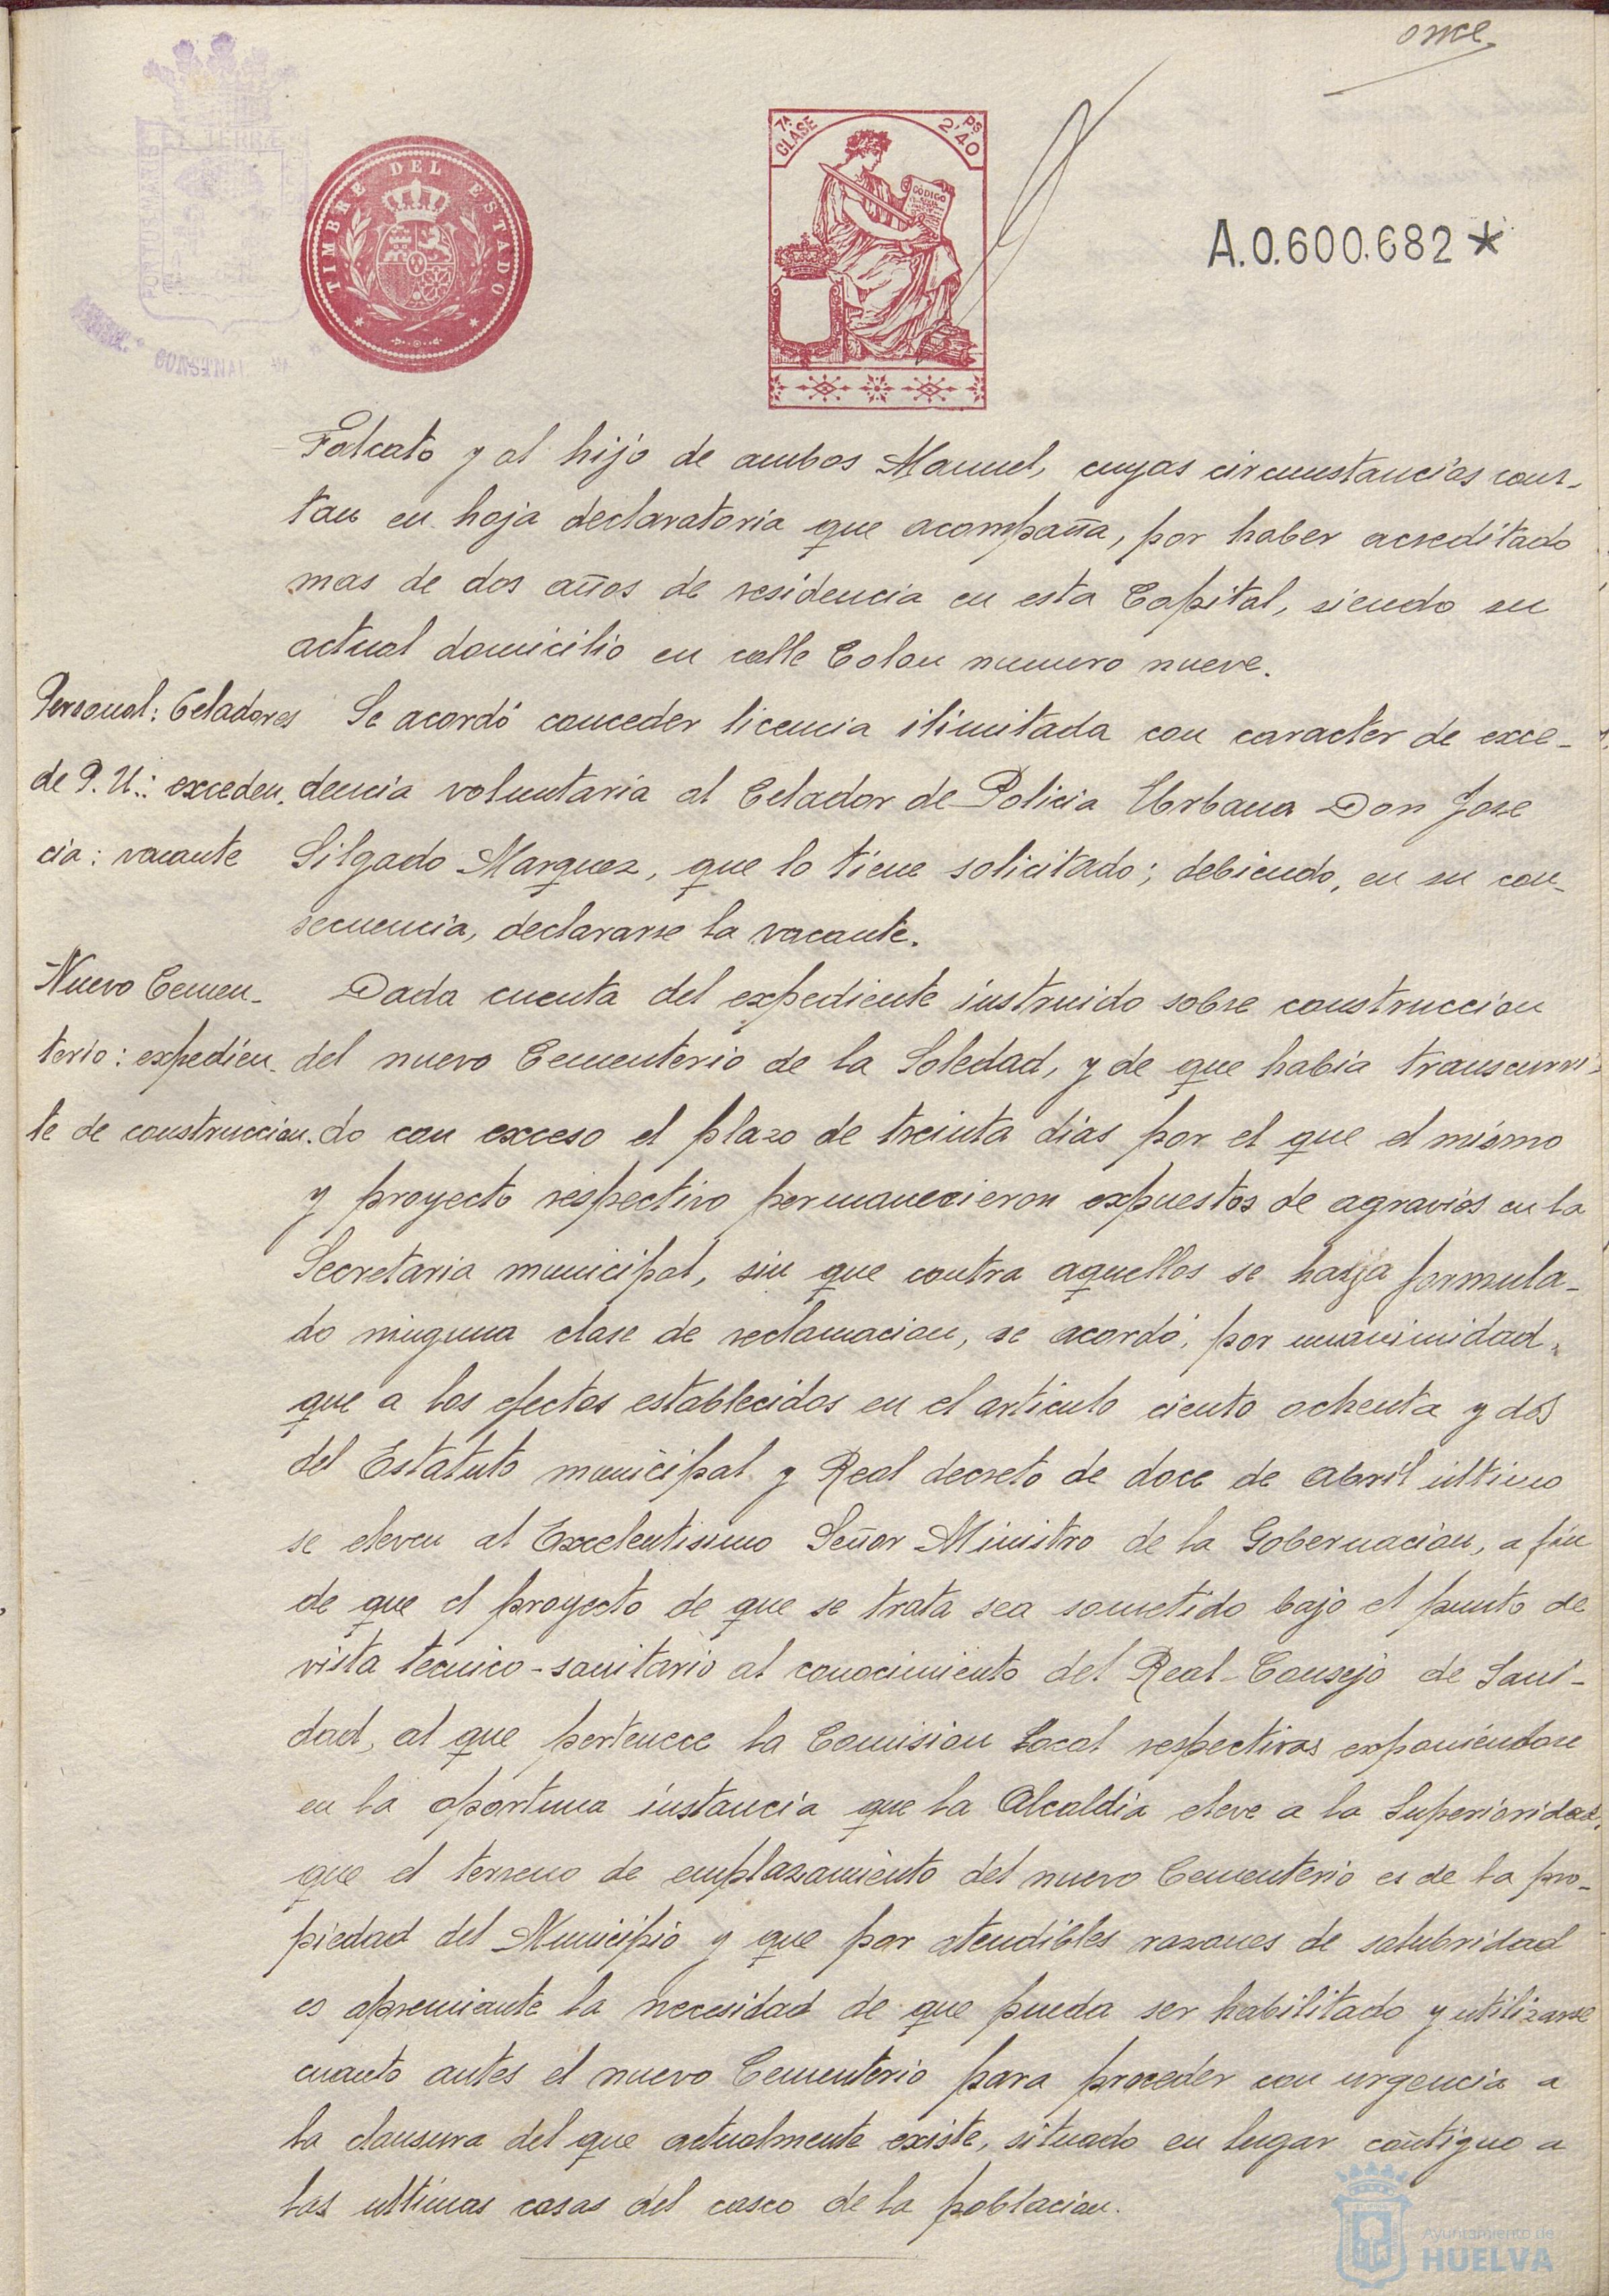 once
TIMBRE DEL ESTADO
7ª CLASE
PS 2'40
CODIGO
A.0.600.682*
Falcato y al hijo de ambos Manuel, cuyas circunstancias cons-
tan en hoja declaratoria que acompaña, por haber acreditado
mas de dos años de residencia en esta Capital, siendo su
actual domicilio en calle Colon numero nueve.
Personal: Celadores
de P. U.: exceden-
cia: vacante
Se acordó conceder licencia ilimitada con caracter de exce-
dencia voluntaria al Celador de Policia Urbana Don Jose
Silgado Marquez, que lo tiene solicitado; debiendo, en su con-
secuencia, declararse la vacante.
Nuevo Cemen-
terio: expedien-
te de construccion.
Dada cuenta del expediente instruido sobre construccion
del nuevo Cementerio de la Soledad, y de que habia transcurri-
do con exceso el plazo de treinta dias por el que el mismo
y proyecto respectivo permanecieron expuestos de agravios en la
Secretaria municipal, sin que contra aquellos se haya formula-
do ninguna clase de reclamacion, se acordó, por unanimidad,
que a los efectos establecidos en el articulo ciento ochenta y dos
del Estatuto municipal y Real decreto de doce de abril último
se eleven al Excelentisimo Señor Ministro de la Gobernacion, a fin
de que el proyecto de que se trata sea sometido bajo el punto de
vista tecnico-sanitario al conocimiento del Real Consejo de Sani-
dad, al que pertenece la Comision Local respectivas exponiendose
en la oportuna instancia que la Alcaldia eleve a la Superioridad,
que el terreno de emplazamiento del nuevo Cementerio es de la pro-
piedad del Municipio y que por atendibles razones de salubridad
es apremiante la necesidad de que pueda ser habilitado y utilizarse
cuanto antes el nuevo Cementerio para proceder con urgencia a
la clausura del que actualmente existe, situado en lugar contiguo a
las ultimas casas del casco de la poblacion.
Ayuntamiento de
HUELVA